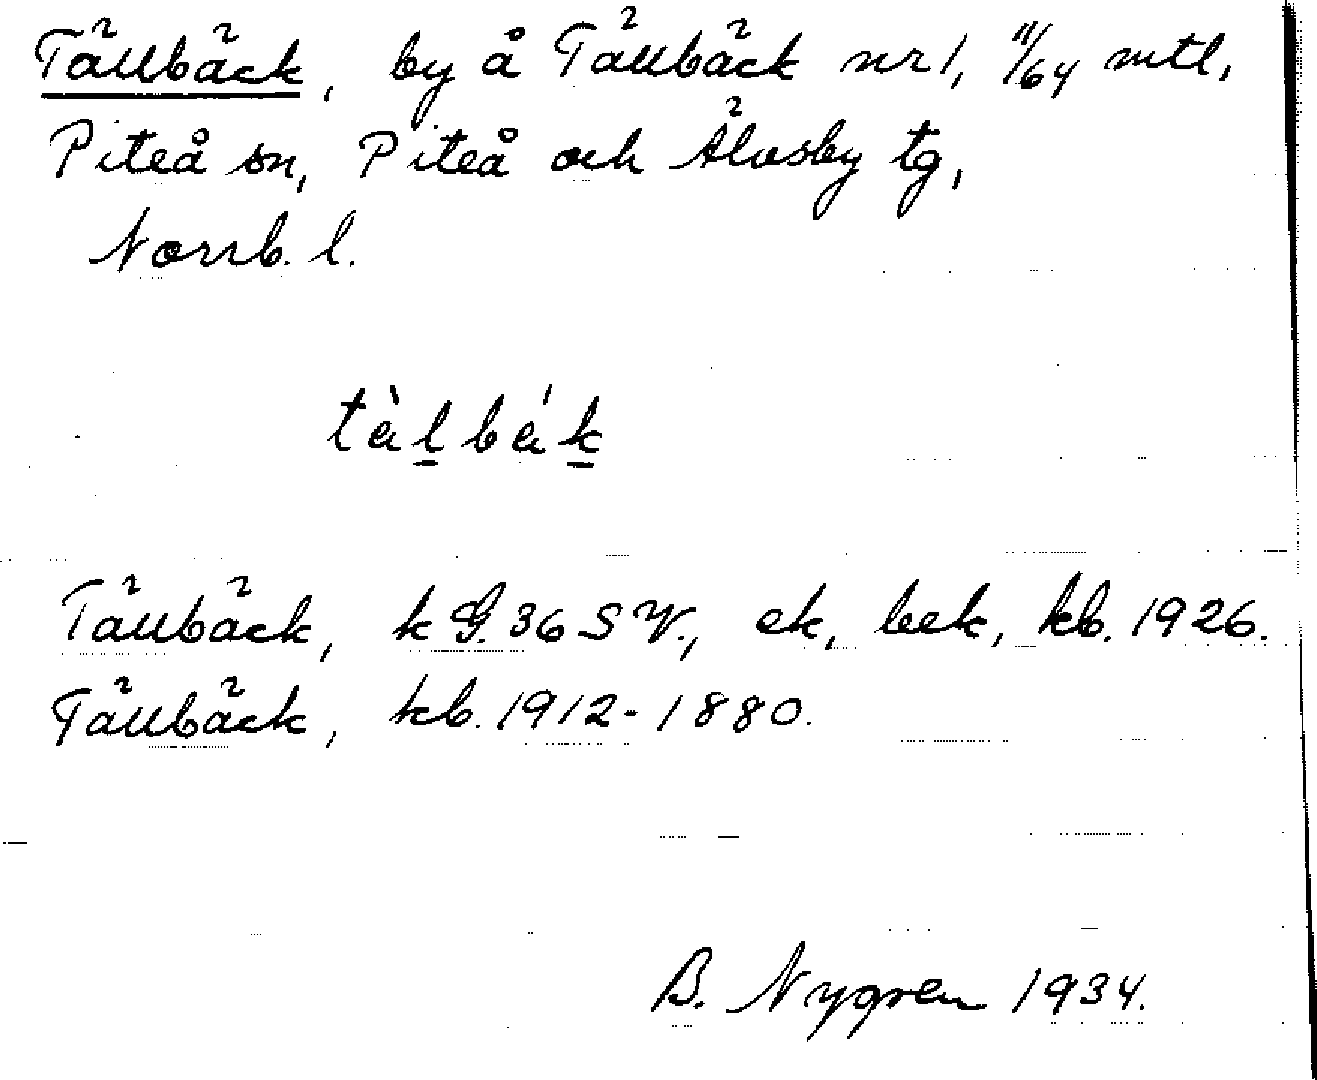 Tällbäck, by å Tällbäck nr 1, 11/64 mtl,
Piteå sn, Piteå och Älvsby tg,
Norrb. l.
tàlbák
Tällbäck, k G. 36 S V., ek, bek, kb. 1926.
Tällbäck, kb. 1912-1880.
B. Nygren 1934.